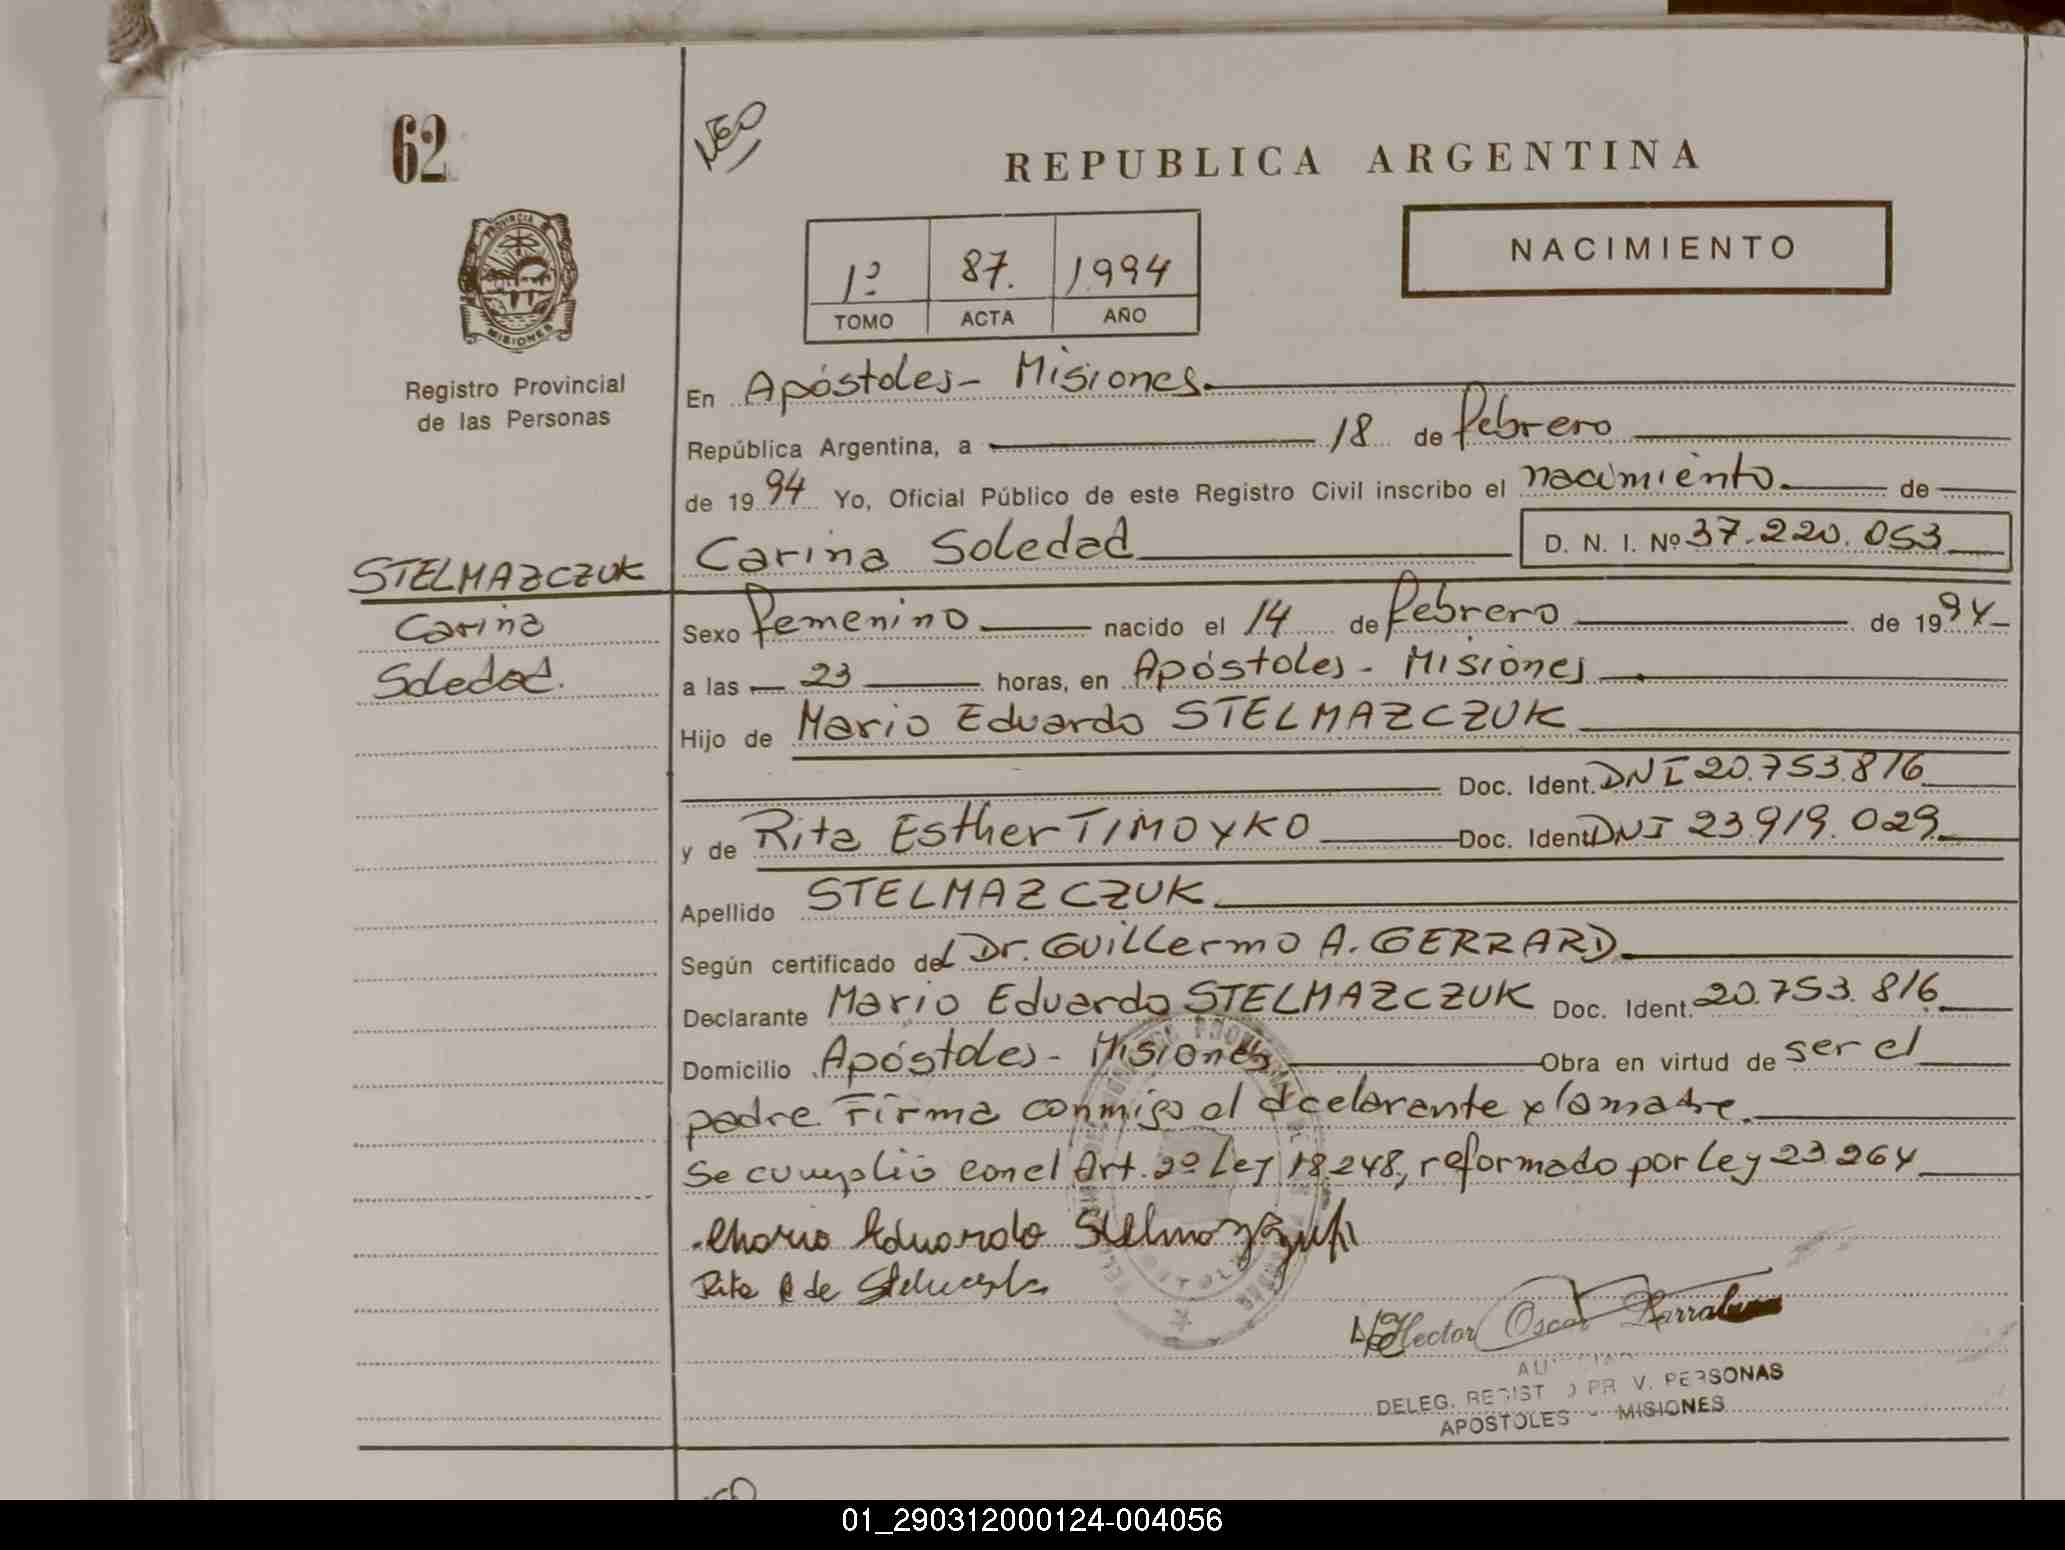 62
VEO
REPUBLICA ARGENTINA
NACIMIENTO
1º 87. 1994
TOMO ACTA AÑO
PROVINCIA DE
MISIONES
Registro Provincial
de las Personas
En Apóstoles - Misiones.
República Argentina, a 18 de febrero
de 1994 Yo, Oficial Público de este Registro Civil inscribo el nacimiento. de
STELMAZCZUK
Carina
Soledad.
Carina Soledad D. N. I. Nº 37.220.053
Sexo femenino nacido el 14 de febrero de 1994
a las 23 horas, en Apóstoles - Misiones
Hijo de Mario Eduardo STELMAZCZUK
Doc. Ident. DNI 20.753.816
y de Rita Esther TIMOYKO Doc. Ident. DNI 23.919.029
Apellido STELMAZCZUK
Según certificado del Dr. Guillermo A. GERRARD
Declarante Mario Eduardo STELMAZCZUK Doc. Ident. 20.753.816
Domicilio Apóstoles - Misiones Obra en virtud de ser el
padre Firma conmigo el dcelarante y la madre.
Se cumplió con el Art. 2º Ley 18.248, reformado por Ley 23.264
Mario Eduardo
Rita de
Hector Oscar
DELEG. REGIST PR V. PERSONAS
APOSTOLES - MISIONES
01_290312000124-004056